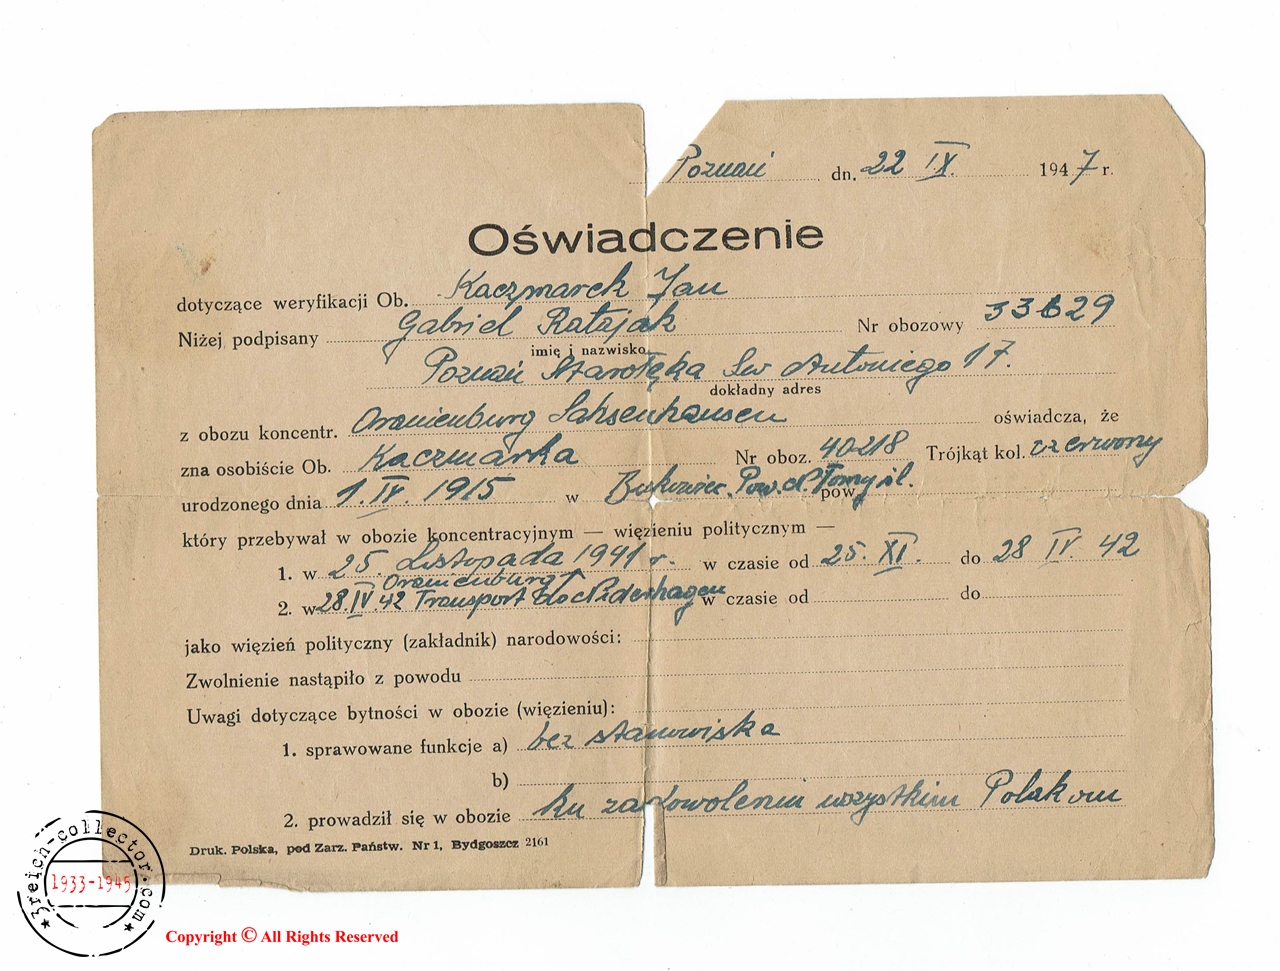 Poznań dn. 22 IX. 1947 r.
Oświadczenie
dotyczące weryfikacji Ob. Kaczmarek Jan
Niżej podpisany Gabriel Ratajak Nr obozowy 33629
imię i nazwisko
Poznań Starołęka Św Antoniego 17.
dokładny adres
z obozu koncentr. Oranienburg Sahsenhausen oświadcza, że
zna osobiście Ob. Kaczmarka Nr oboz. 40218 Trójkąt kol. czerwony
urodzonego dnia 1. IV. 1915 w Bukowiec. Pow. pow. Tomyśl.
który przebywał w obozie koncentracyjnym — więzieniu politycznym —
1. w 25. Listopada 1941 r. w czasie od 25. XI. do 28 IV 42
Oranienburg
2. w 28.IV.42 Transport do w czasie od do
jako więzień polityczny (zakładnik) narodowości:
Zwolnienie nastąpiło z powodu
Uwagi dotyczące bytności w obozie (więzieniu):
1. sprawowane funkcje a) bez stanowiska
b)
2. prowadził się w obozie ku zadowoleniu wszystkim Polakom
Druk. Polska, pod Zarz. Państw. Nr 1, Bydgoszcz 2161
3reich-collector.com
1933-1945
Copyright © All Rights Reserved